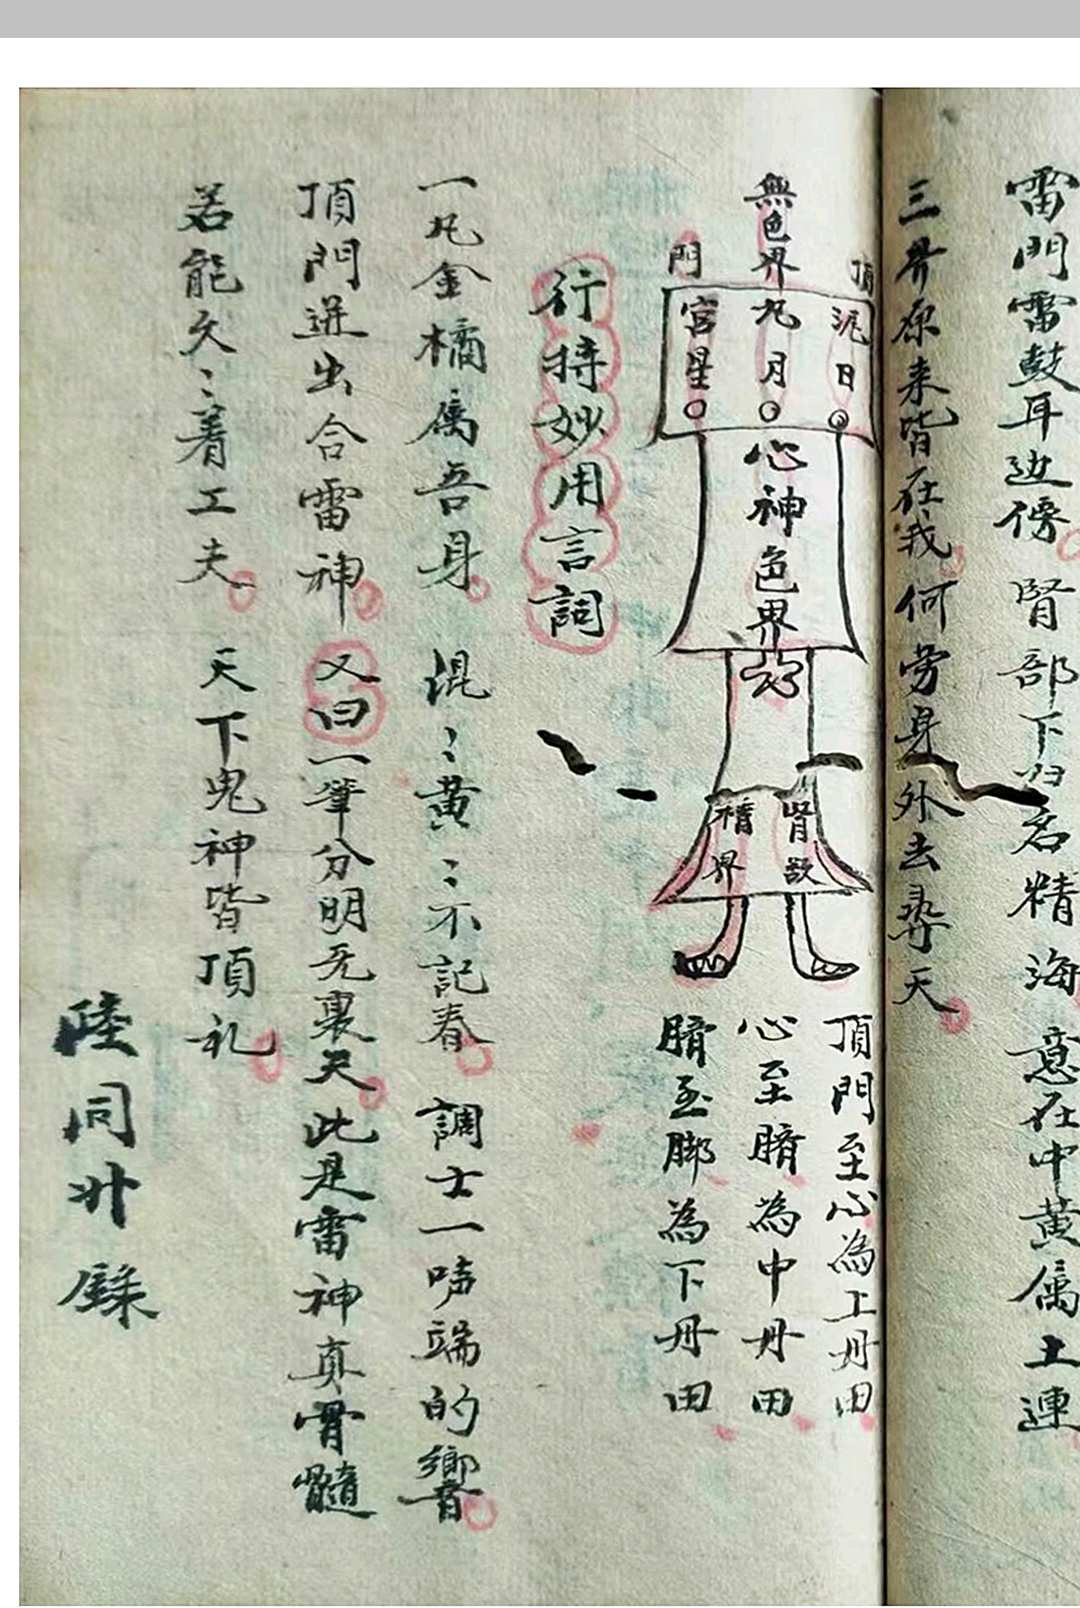 雷門雷鼓耳边傍　腎部下归名精海　意在中黃属土連
三界原来皆在我　何劳身外去尋天
頂門
無色界
泥日
九月
宮星
心神色界
腎欲
精界
頂門至心為上丹田
心至臍為中丹田
臍至脚為下丹田
行持妙用言詞
一凡金橘属吾身　混〻黃〻不記春　調士一声端的響
頂門迸出合雷神　又曰一筆分明无裏天　此是雷神真骨髓
若能久〻着工夫　天下鬼神皆頂礼
陸同廾錄